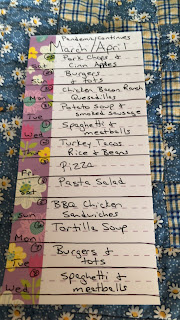 Pandemic Continues
March/April
Pork Chops &
Cinn Apples
Sat
Burgers
& tots
Sun
Chicken Bacon Ranch
Quesadillas
Mon
Potato Soup &
smoked sausage
Tue
Spaghetti &
meatballs
Wed
Turkey Tacos
Rice & Beans
Thu
Pizza
Fri
Pasta Salad
Sat
BBQ Chicken
Sandwiches
Sun
Tortilla Soup
Mon
Burgers &
tots
Spaghetti &
meatballs
Wed